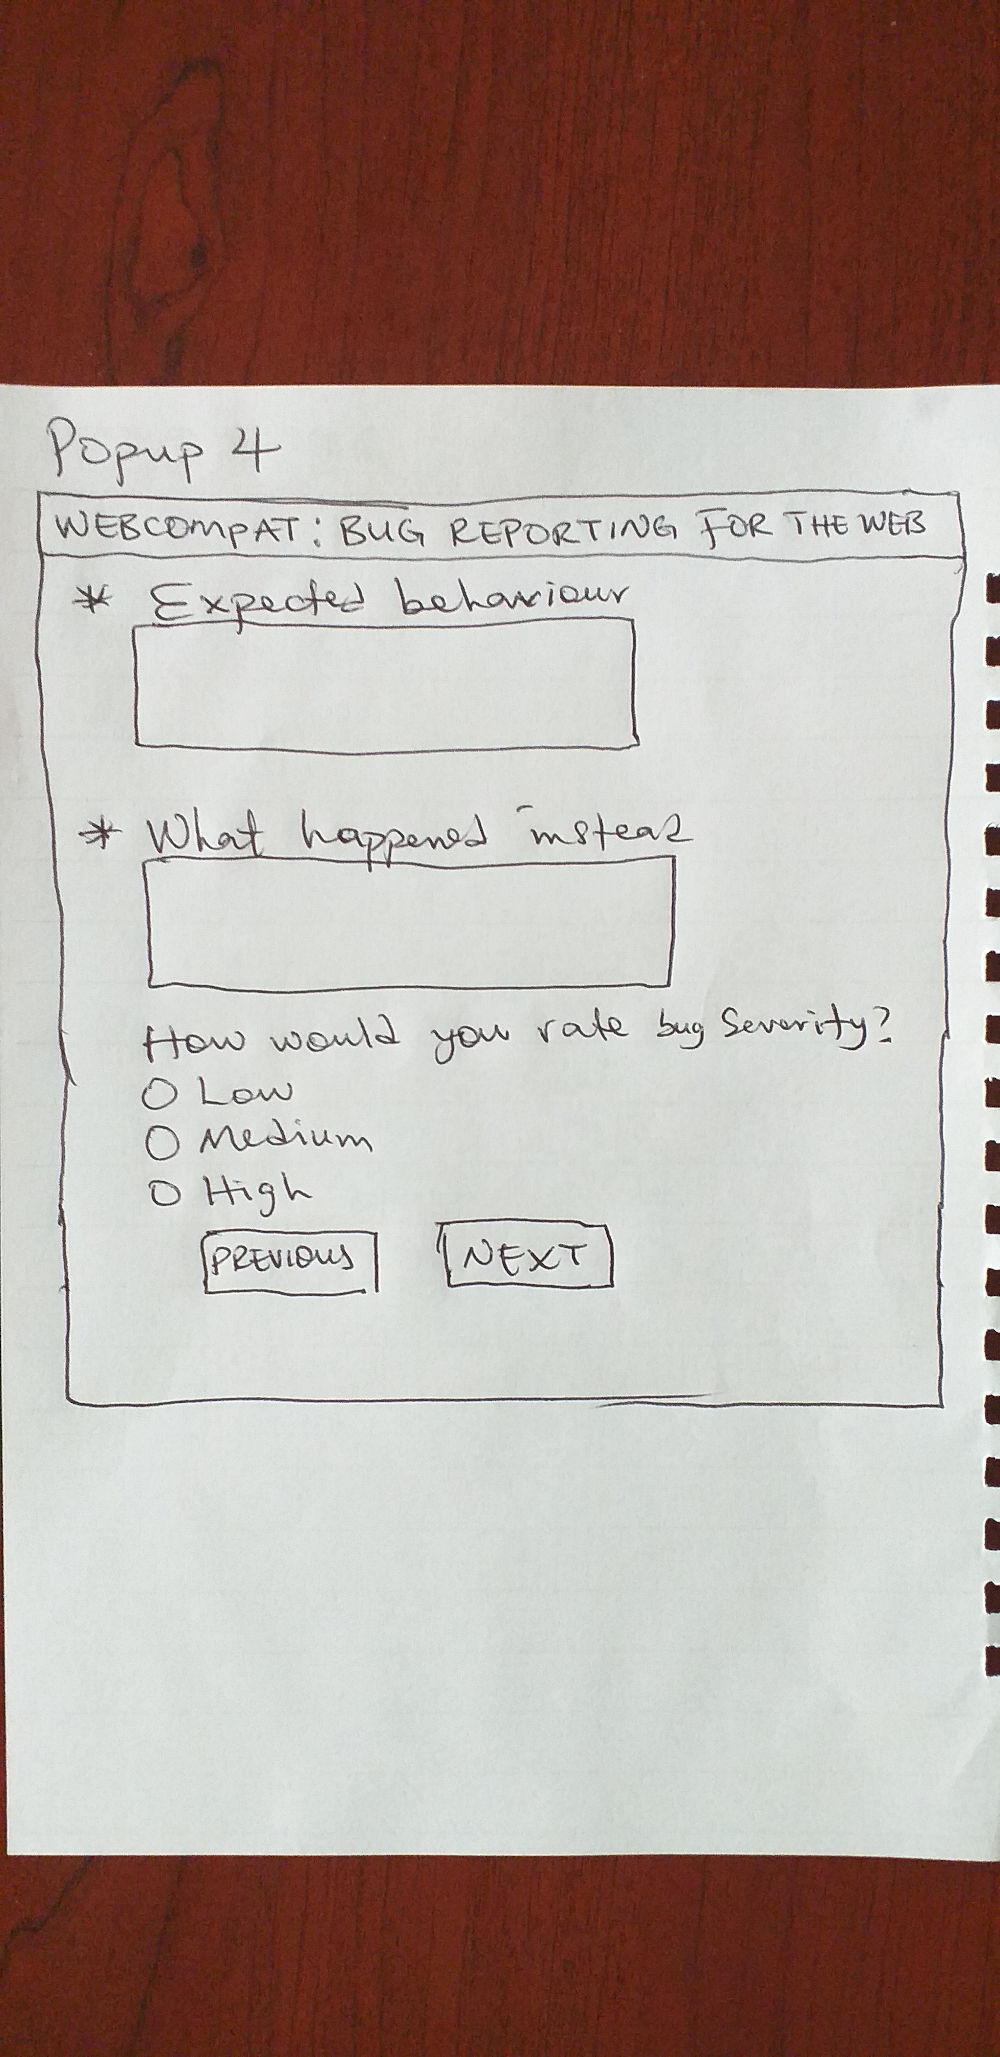 Popup 4
WEBCOMPAT: BUG REPORTING FOR THE WEB
* Expected behaviour
* What happened instead
How would you rate bug severity?
O Low
O Medium
O High
PREVIOUS NEXT